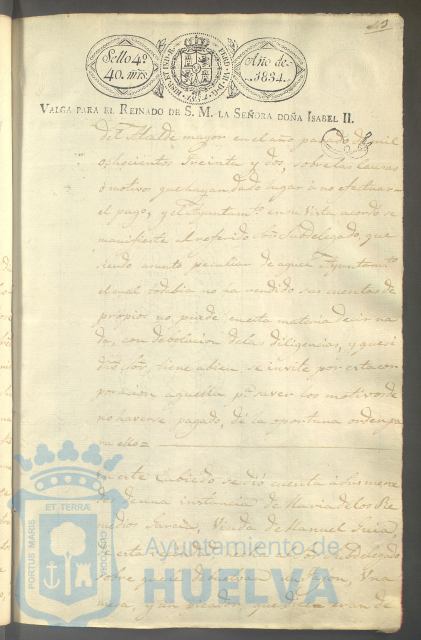 43
Sello 4º
40. mrs.
HISP. ET IND. R.
FERD. VII. D. G.
1834
Año de
1834.
VALGA PARA EL REINADO DE S. M. LA SEÑORA DOÑA ISABEL II.
del Alcalde mayor en el año pasado de mil
ochocientos treinta y dos, sobre las causas
ó motivos que hayan dado lugar á no efectuar
el pago, y el Ayuntamto en su vista acordó se
manifieste al referido Sor Subdelegado, que
siendo asunto peculiar de aquel Ayuntamto
el cual todabia no ha rendido sus cuentas de
propios no puede en esta materia decir na
da, con debolucion de las diligencias, y que si
dicho Sor tiene á bien se invite por esta cor
poracion á aquella pa saver los motivos de
no haverse pagado, dé la oportuna orden pa
ra ello=
En este Cabildo se dió cuenta á sus merce
des de una instancia de Maria de los Re
medios Garcia, Viuda de Manuel
sobre que se debuelvan un
mesa, y un que dicen eran de
PORTUS MARIS
ET TERRÆ
CUSTODIA
Ayuntamiento de
HUELVA